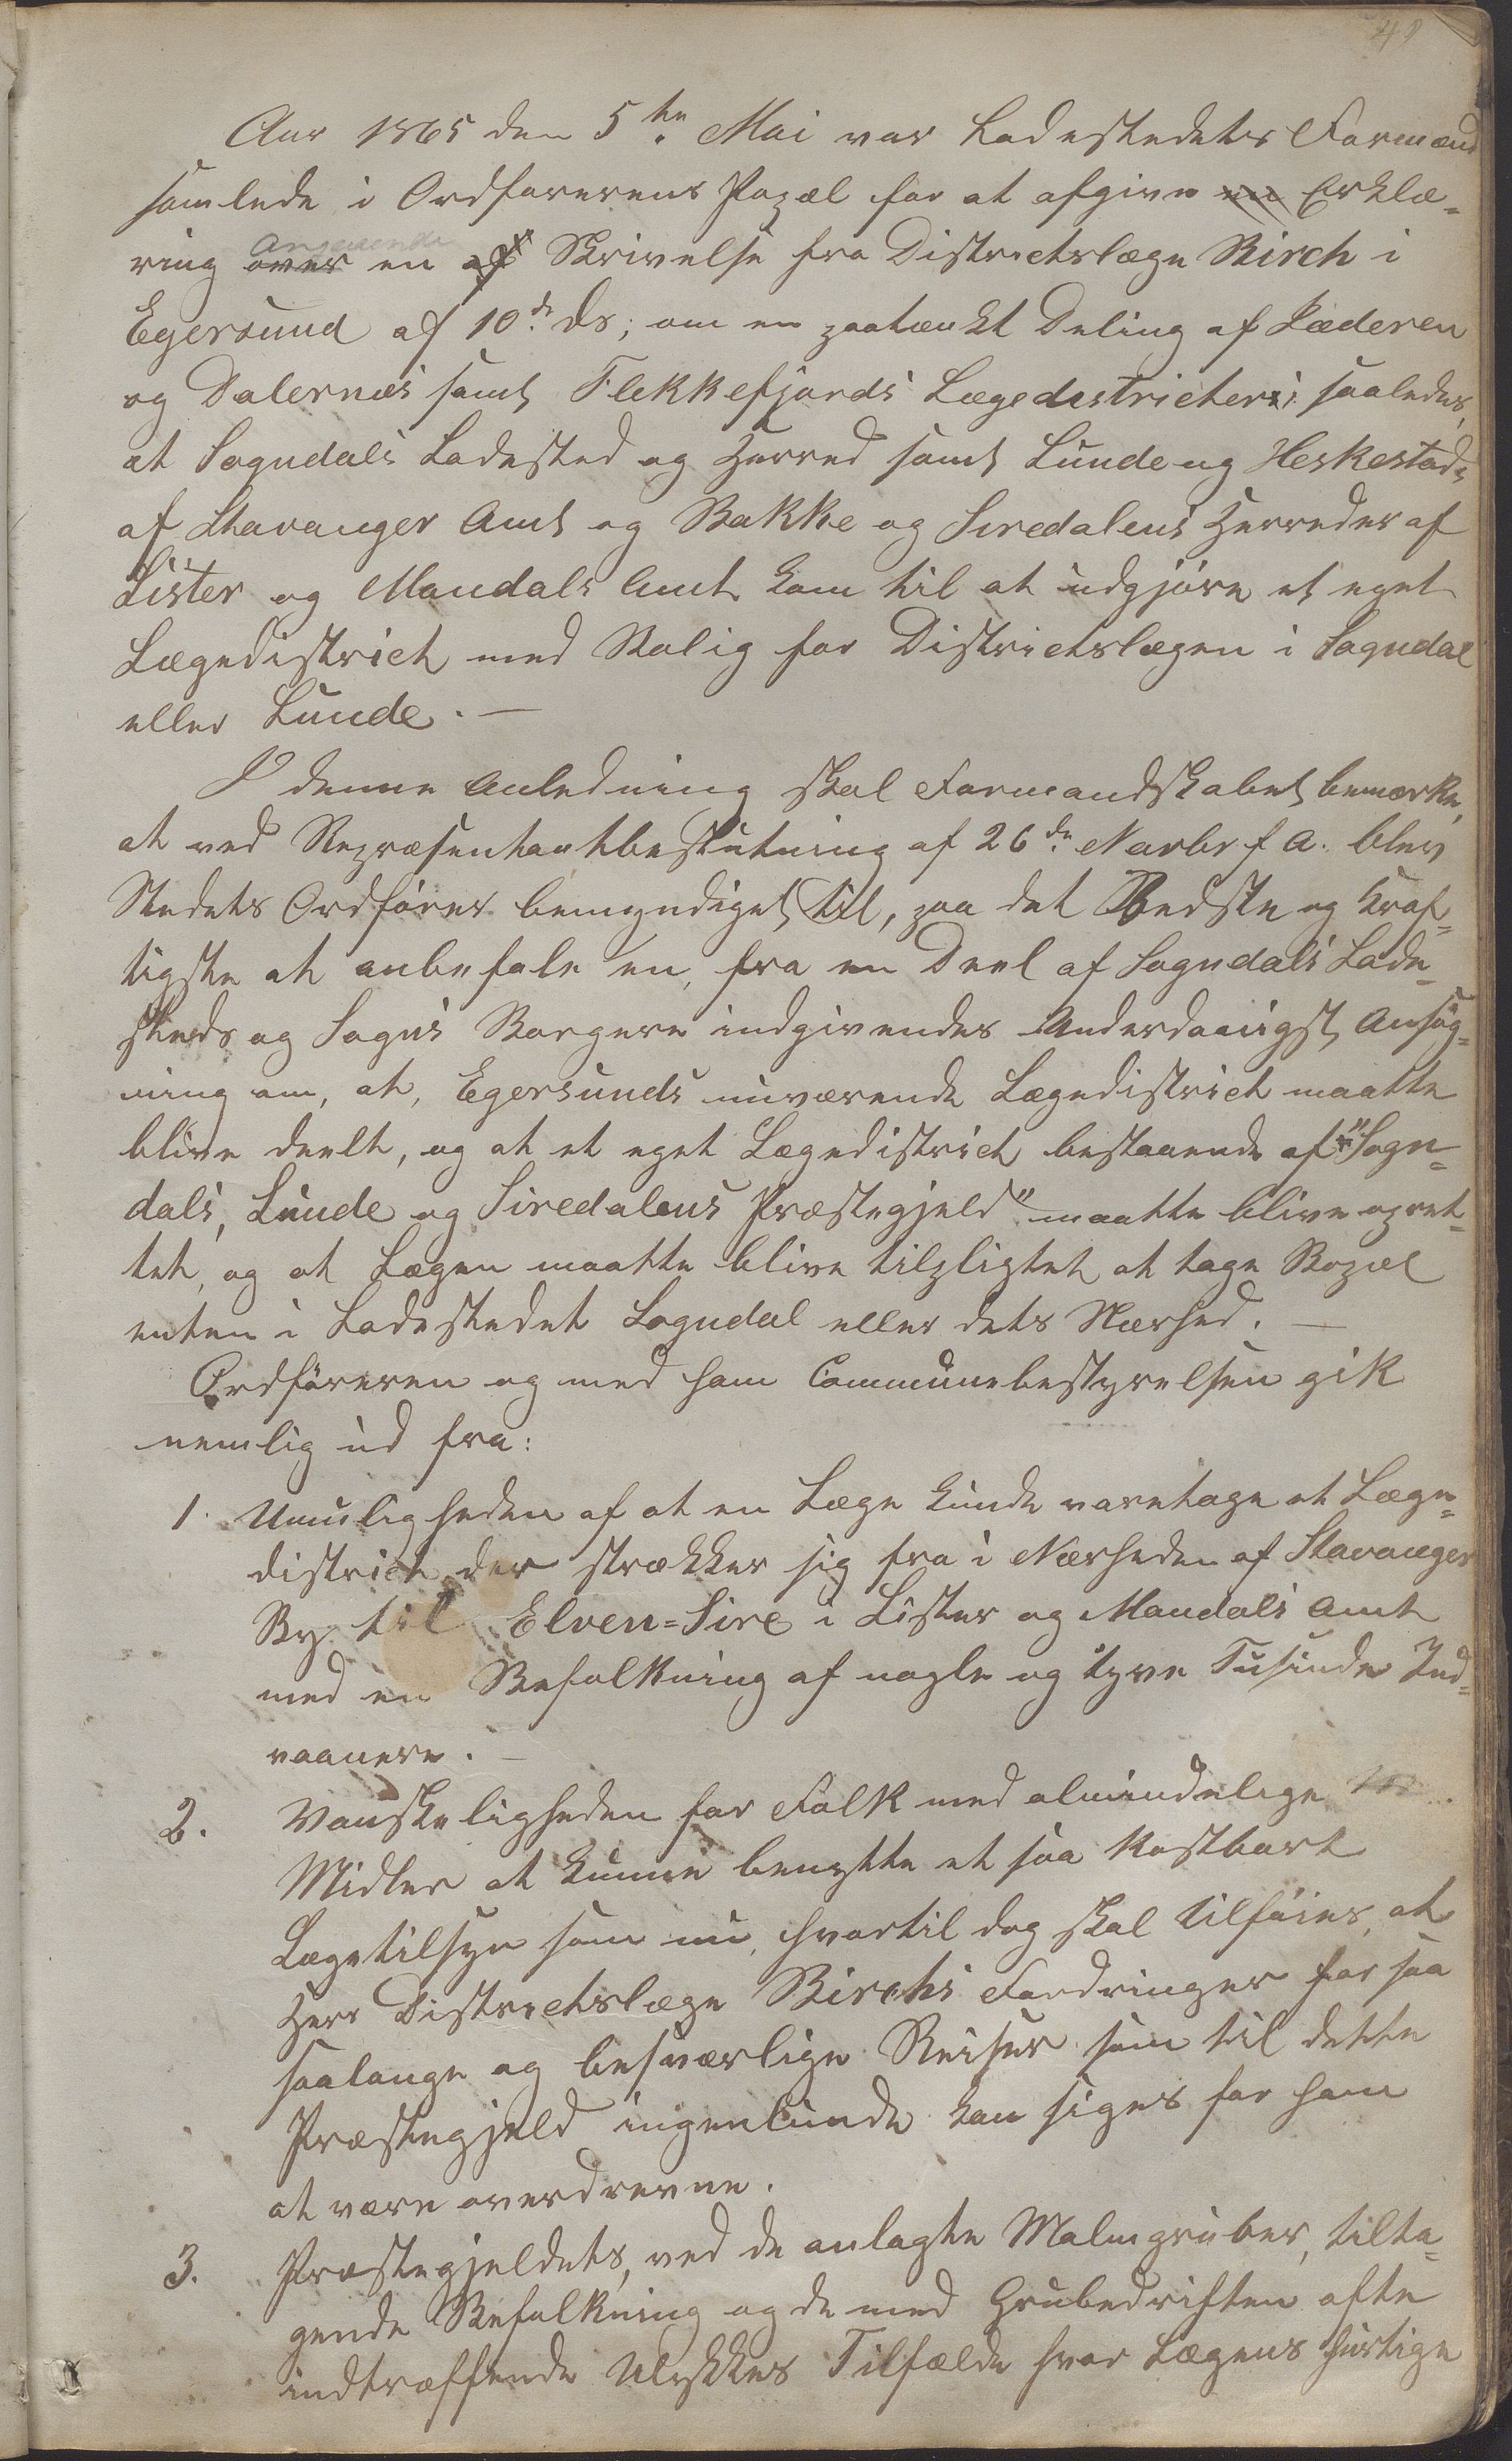 48
Aar 1865 den 5te Mai var Ladestedets Formænd
samlede i Ordførerens Popæl for at afgive en Erklæ-
ring over Angaaende en af Skrivelse fra Districtslæge Birch i
Egersund af 10de ds; om en paatænkt Deling af Jæderen
og Dalernes samt Flekkefjords Lægedistricter; saaledes,
at Sogndals Ladested og Herred samt Lunde og Heskestads
af Stavanger Amt og Bakke og Siredalens Herreder af
Lister og Mandals Amt kom til at udgjøre et eget
Lægedistrict med Bolig for Districtslægen i Sogndal
eller Lunde. —
I denne Anledning skal Formandskabet bemærke,
at ved Repræsentantbeslutning af 26de Novbr f A. blev
Stedets Ordfører bemyndiget til, paa det Bedste og kraf-
tigste at anbefale en, fra en Deel af Sogndals Lade-
steds og Sogns Borgere indgivendes Underdanigst Ansøg-
ning om, at, Egersunds nuværende Lægedistrict maatte
blive deelt, og at et eget Lægedistrict bestaaende af "Sogn-
dals, Lunde og Siredalens Præstegjeld" maatte blive opret-
tet, og at Lægen maatte blive tilpligtet at tage Bopæl
enten i Ladestedet Sogndal eller dets Nærhed. —
Ordføreren og med ham Communebestyrelsen gik
nemlig ud fra:
1. Umuligheden af at en Læge kunde varetage et Læge-
district der strækker sig fra i Nærheden af Stavanger
By til Elven=Sire i Lister og Mandals Amt
med en Befolkning af nogle og tyve Tusinde Ind-
vaanere. —
2. Vanskeligheden for Folk med almindelige
Midler at kunne benytte et saa kostbart
Lægetilsyn som nu, hvortil dog skal tilføies, at
Herr Districtslæge Birchs Fordringer for saa
saalange og besværlige Reiser som til dette
Præstegjeld ingenlunde kan siges for ham
at være overdrevne.
3. Præstegjeldets, ved de anlagte Malmgruber, tilta-
gende Befolkning og de med Grubedriften ofte
indtræffende Ulykkes Tilfælde hvor Lægens hurtige